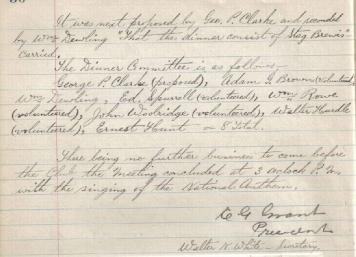 It was next proposed by Geo. P. Clarke and seconded
by Wm Dewling "That the dinner consist of Stag Brewis"
Carried.
The Dinner Committee is as follows,
George P. Clarke (proposed), Adam G Brown (volunteered)
Wm Dewling, Ed, Spurrell (volunteered), Wm Rowe
(volunteered), John Woolridge (volunteered), Walter
(volunteered), Ernest - 8 Total.
There being no further business to come before
the Club the Meeting concluded at 3 oclock P. M.
with the singing of the National Anthem.
E G Grant
President
Walter N. White - Secretary